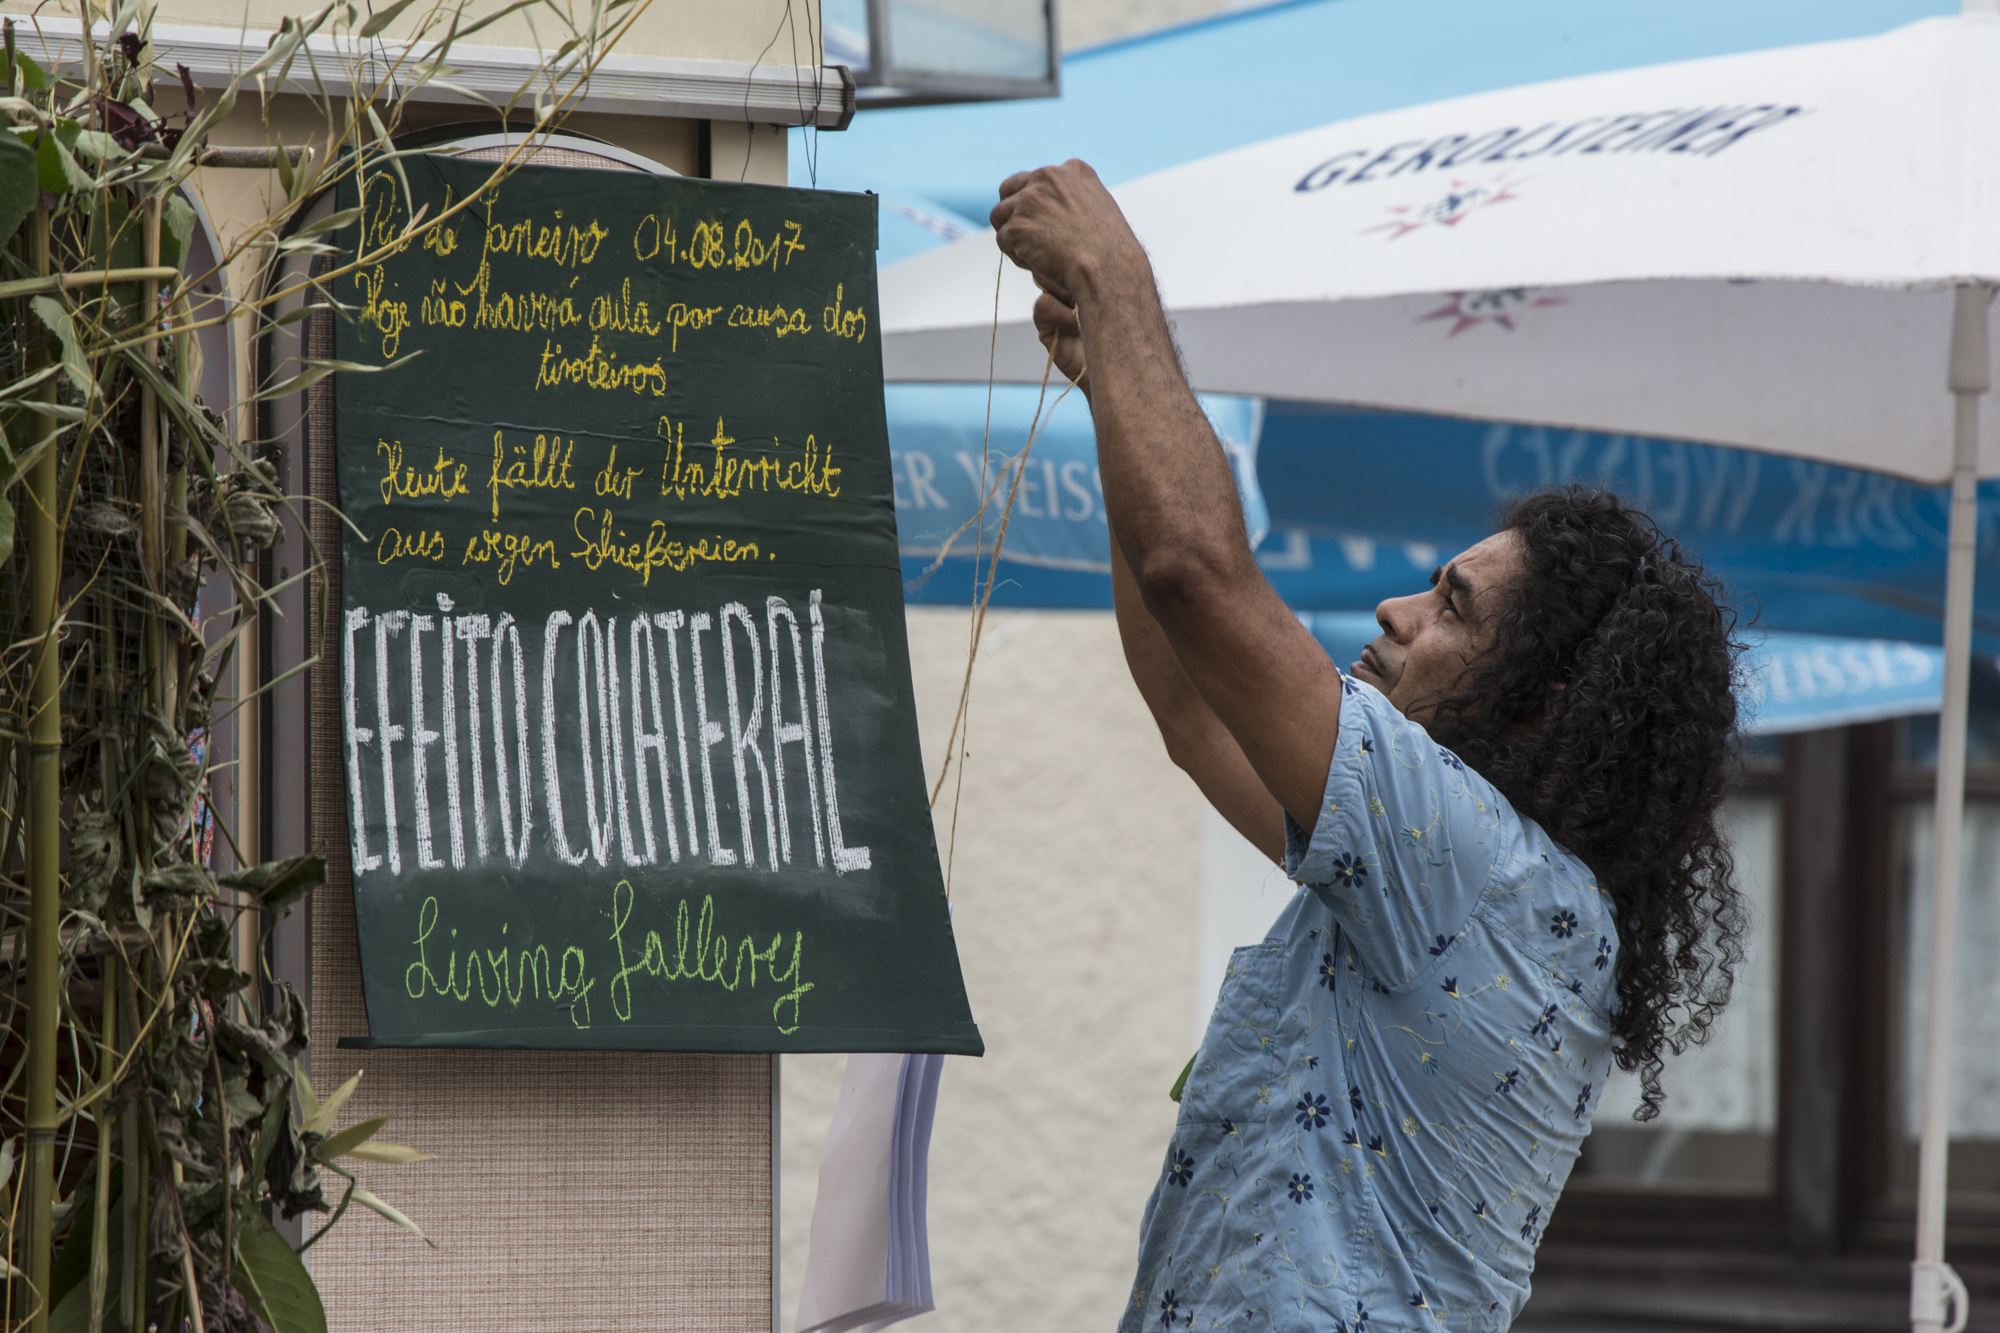 Rio de Janeiro 04.08.2017
Hoje não haverá aula por causa dos
tiroteiros
Heute fällt der Unterricht
aus wegen Schießereien.
EFEITO COLATERAL
Living Gallery
GEROLSTEINER
ER WEISS
WEISSES